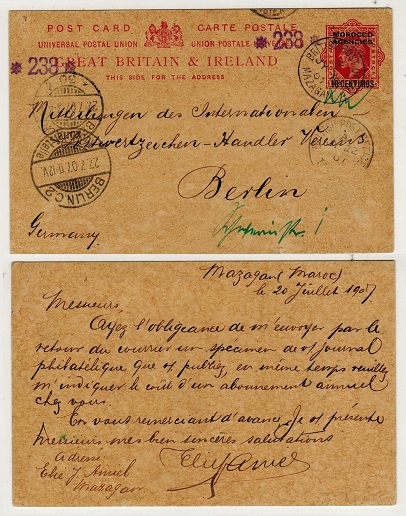 POST CARD CARTE POSTALE
UNIVERSAL POSTAL UNION UNION POSTALE
MOROCCO
AGENCIES
*238* *238*
GREAT BRITAIN & IRELAND
THIS SIDE FOR THE ADDRESS
10 CENTIMOS
MAZAGAN
Mitteilungen des Internationalen
Postwertzeichen-Händler Vereins
Berlin
27.7.07.11-12V.
BERLIN.C.2
Germany
Mazagan (Maroc)
le 20 Juillet 1907
Messieurs
Ayez l'obligeance de m'envoyer par le
retour du courrier un specimen de vs journal
philatélique que vs publiez, en même temps veuillez
m'indiquer le coût d'un abonnement annuel
chez vous.
En vous remerciant d'avance, Je vs présente
Messieurs mes bien sincères salutations
Adresse
Elie J. Amiel
Mazagan